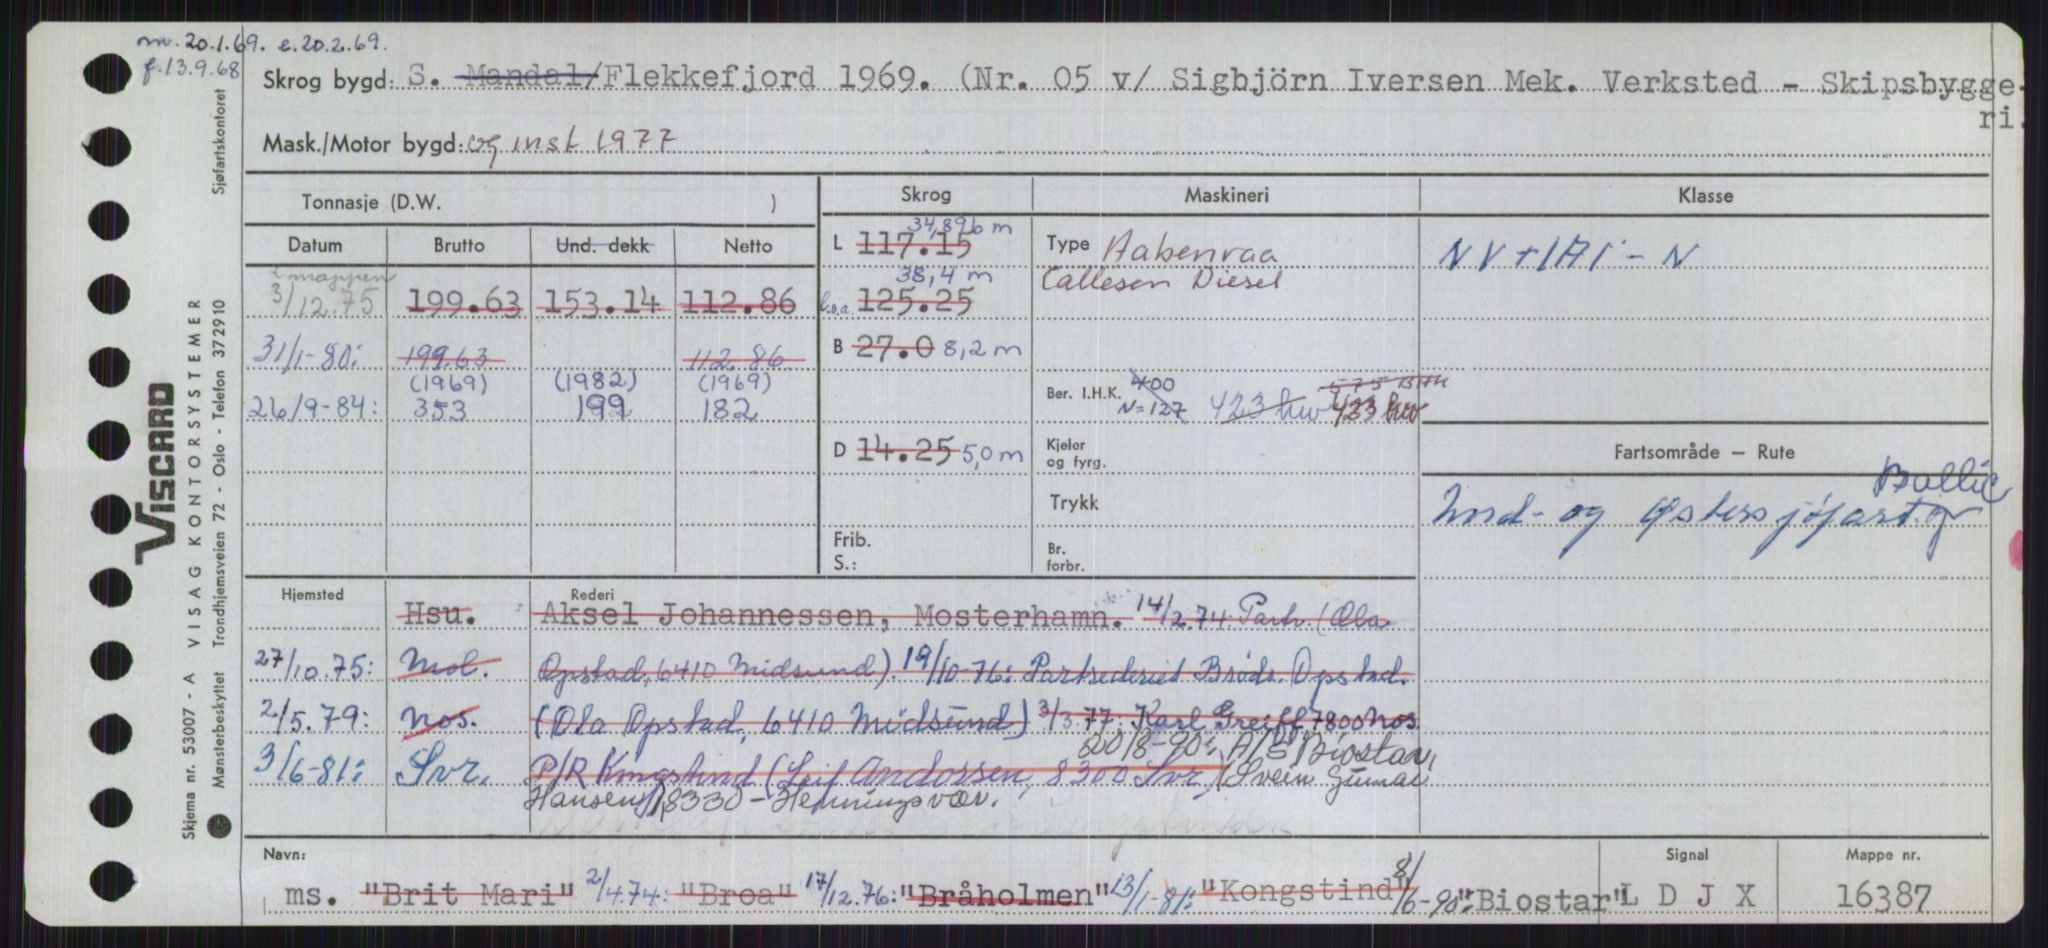 m. 20.1.69. e. 20.2.69.
f. 13.9.68
Skrog bygd: S. Mandal/Flekkefjord 1969. (Nr. 05 v/ Sigbjörn Iversen Mek. Verksted - Skipsbygge-
ri.
Mask./Motor bygd: og inst 1977
Tonnasje (D.W. )
Skrog
Maskineri
Klasse
Datum
Brutto
Und. dekk
Netto
i mappen
3/12.75 199.63 153.14 112.86
31/1-80: 199.63 112.86
(1969) (1982) (1969)
26/9-84: 353 199 182
34,896 m
L 117.15
38,4 m
l.o.a. 125.25
B 27.0 8,2 m
D 14.25 5,0 m
Frib.
S.:
Type Aabenraa
Callesen Diesel
Ber. I.H.K. 400 575 BHK
N=127 423 kw 423 kw
Kjeler
og fyrg.
Trykk
Br.
forbr.
Fartsområde — Rute
Baltic
Nord- og Østersjøfart og
Hjemsted
Rederi
Hsu. Aksel Johannessen, Mosterhamn. 14/2.74 Partr (Ola
27/10.75: Mol. Opstad, 6410 Midsund). 19/10-76: Partrederiet Brødr. Opstad.
2/5.79: Nos. (Ola Opstad, 6410 Midsund) 3/3.77: Karl Greiff, 7800 Nos.
20/8-90: A/S Biostar,
3/6-81: Svr. P/R Kongstind (Leif Andorsen, 8300 Svr.) (Svein Gunnar
Hansen), 8330 - Henningsvær.
Navn:
Signal
Mappe nr.
ms. "Brit Mari" 2/4.74: "Broa" 17/12.76: "Bråholmen" 13/1-81: "Kongstind" 8/6-90: "Biostar" L D J X 16387
VISCARD
Skjema nr. 53007 - A VISAG KONTORSYSTEMER
Mønsterbeskyttet Trondhjemsveien 72 - Oslo - Telefon 372910
Sjøfartskontoret